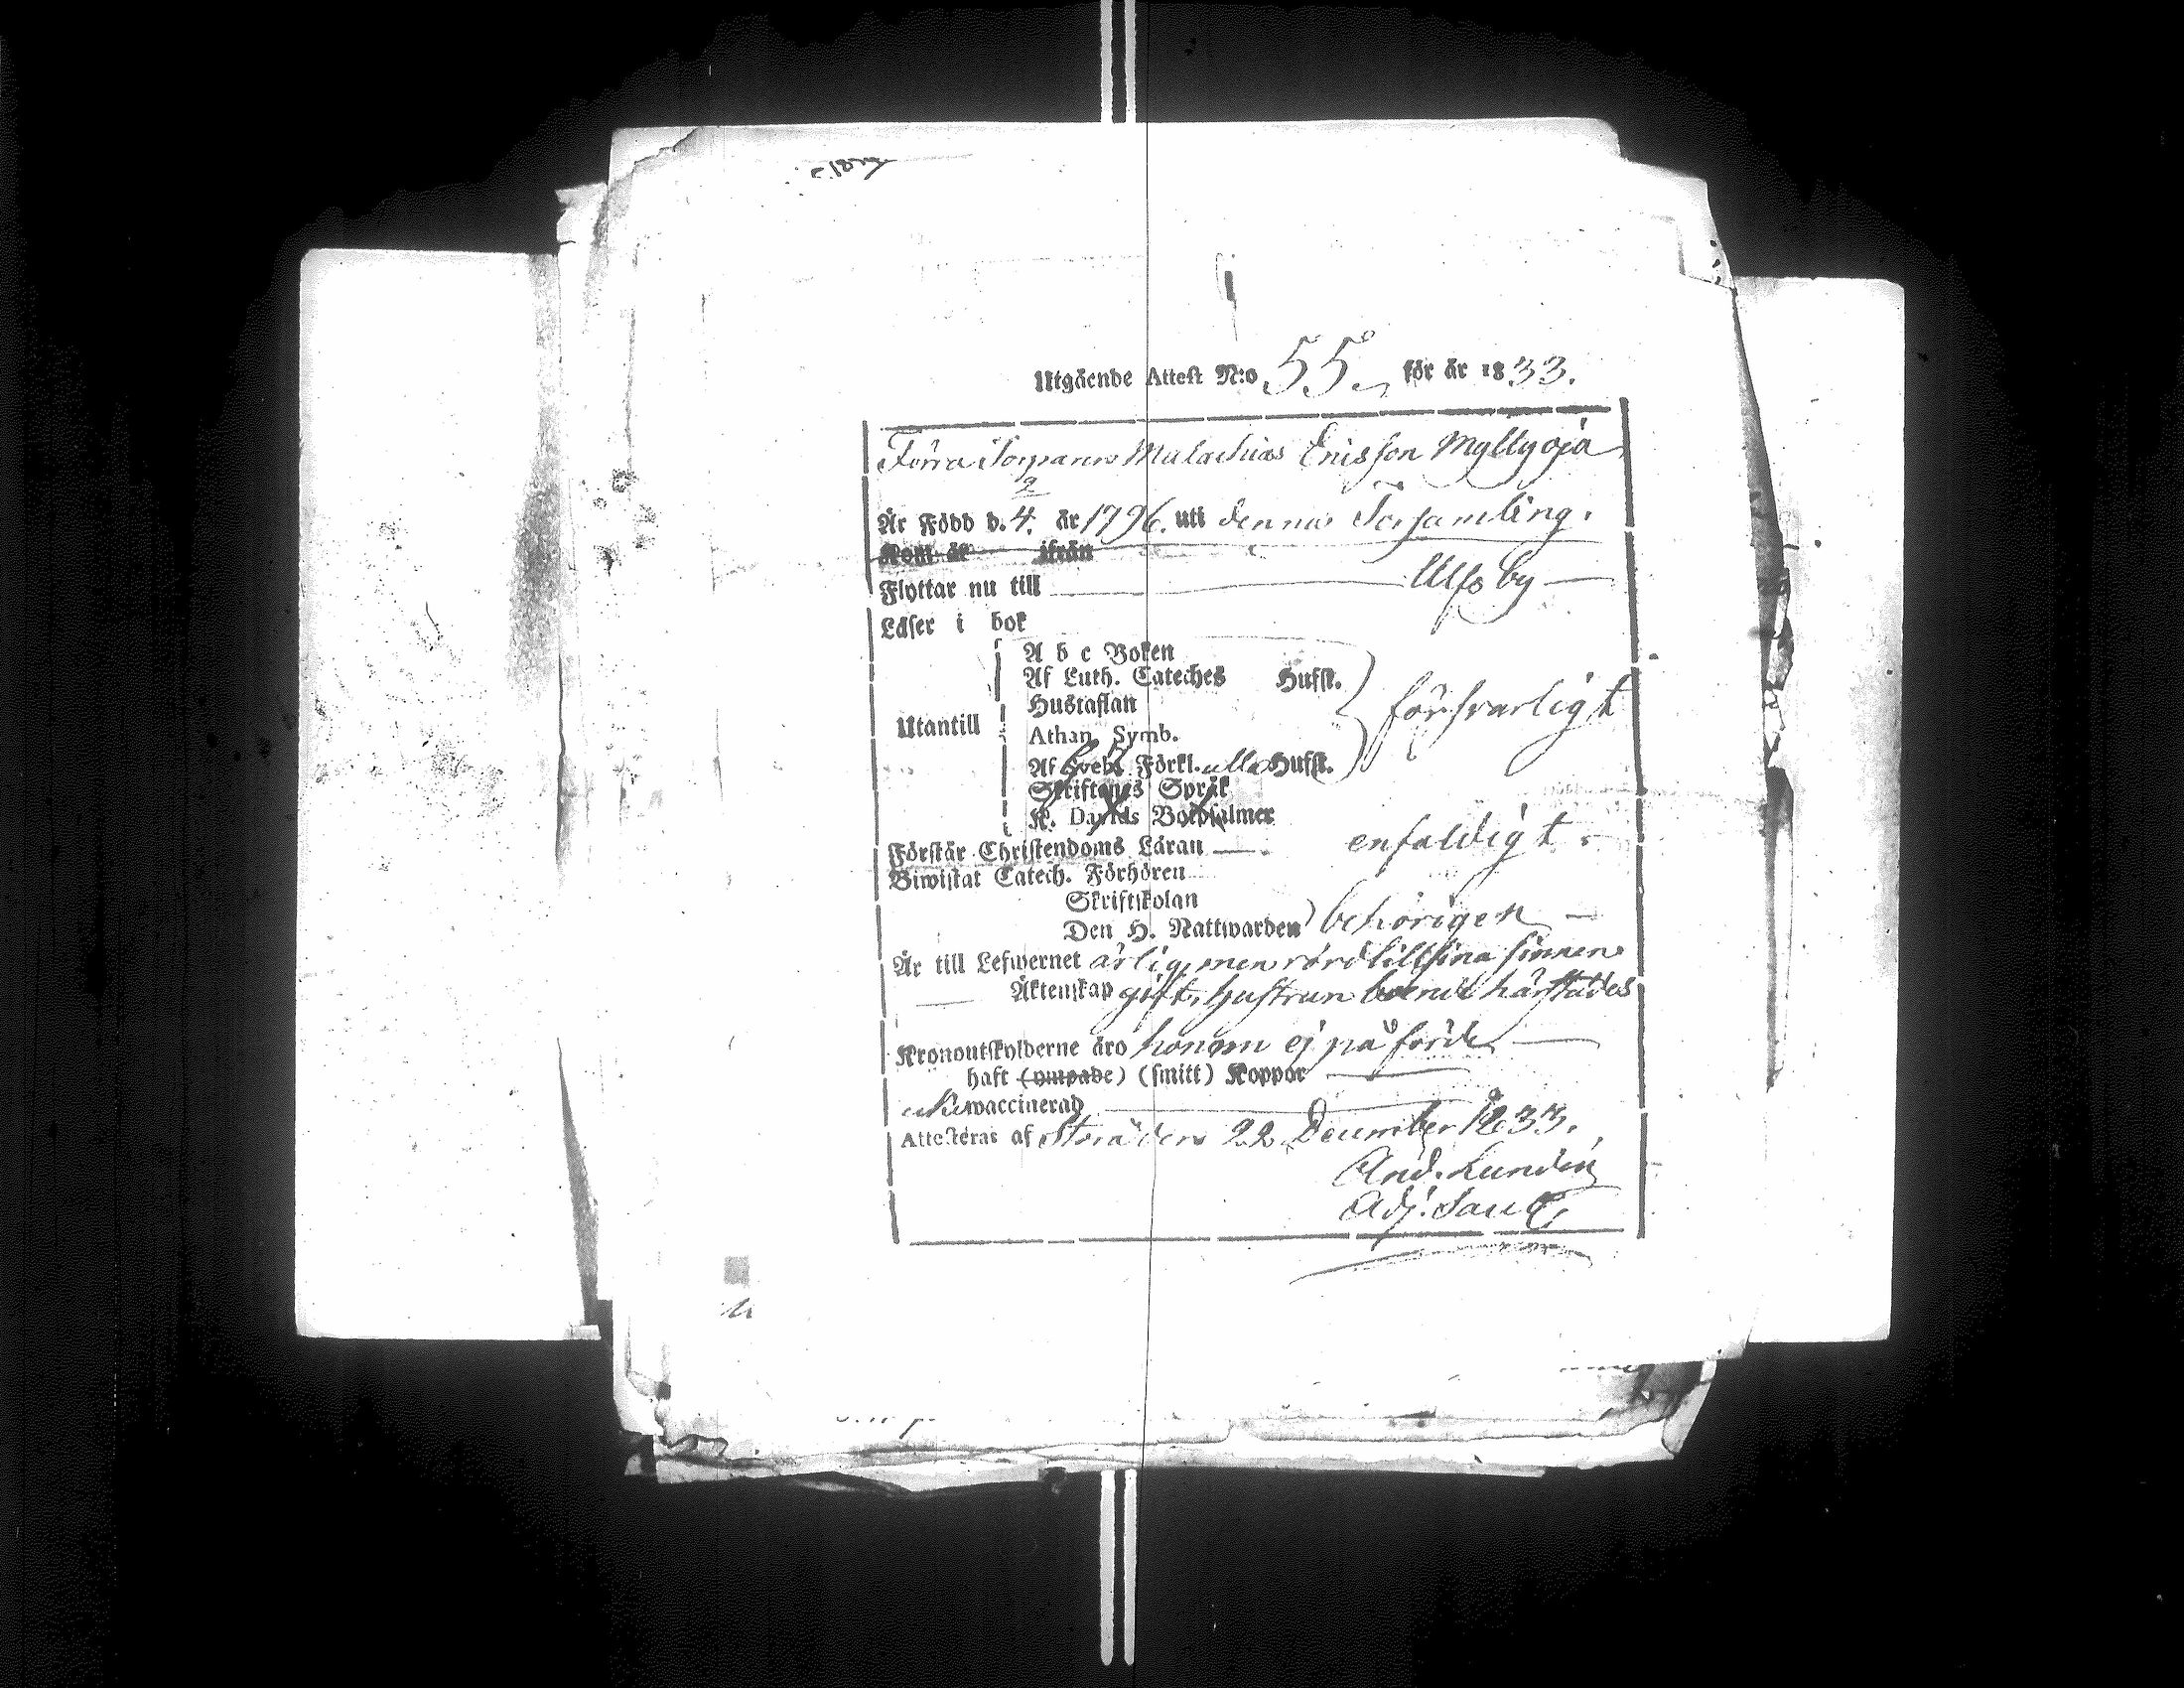 Utgående Attest N:o 55. för år 1833.
Förra Torparen Malachias Ericsson Myllyoja
2
Är Född d. 4. år 1796. uti denna Församling.
Kom år ifrån
Flyttar nu till Ulfsby
Läser i bok
A b c Boken
Af Luth. Cateches Hufst.
Hustaflan
Utantill
försvarligt
Athan. Symb.
Af Sveb. Förkl. alla Hufst.
Skriftenes Språk
K. Davids Botpsalmer
Förstår Christendoms Läran enfaldigt.
Biwistat Catech. Förhören
Skriftskolan
Den H. Nattwarden behörigen
Är till Lefwernet ärlig, men rörd till sina sinnen
Äktenskap gift, hustrun boende härstädes
Kronoutskylderne äro honom ej påförde
haft (ympade) (smitt) Koppor
waccinerad
Attesteras af den 22 December 1833.
And. Lundén
Adj.